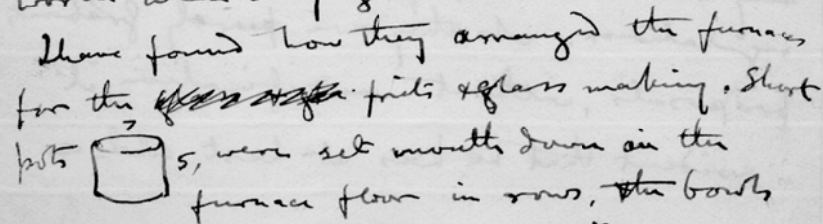 I have found how they arranged the furnaces
for the frits & glass making. Short
pots 7 5, were set mouth down on the
furnace floor in rows, the bowls